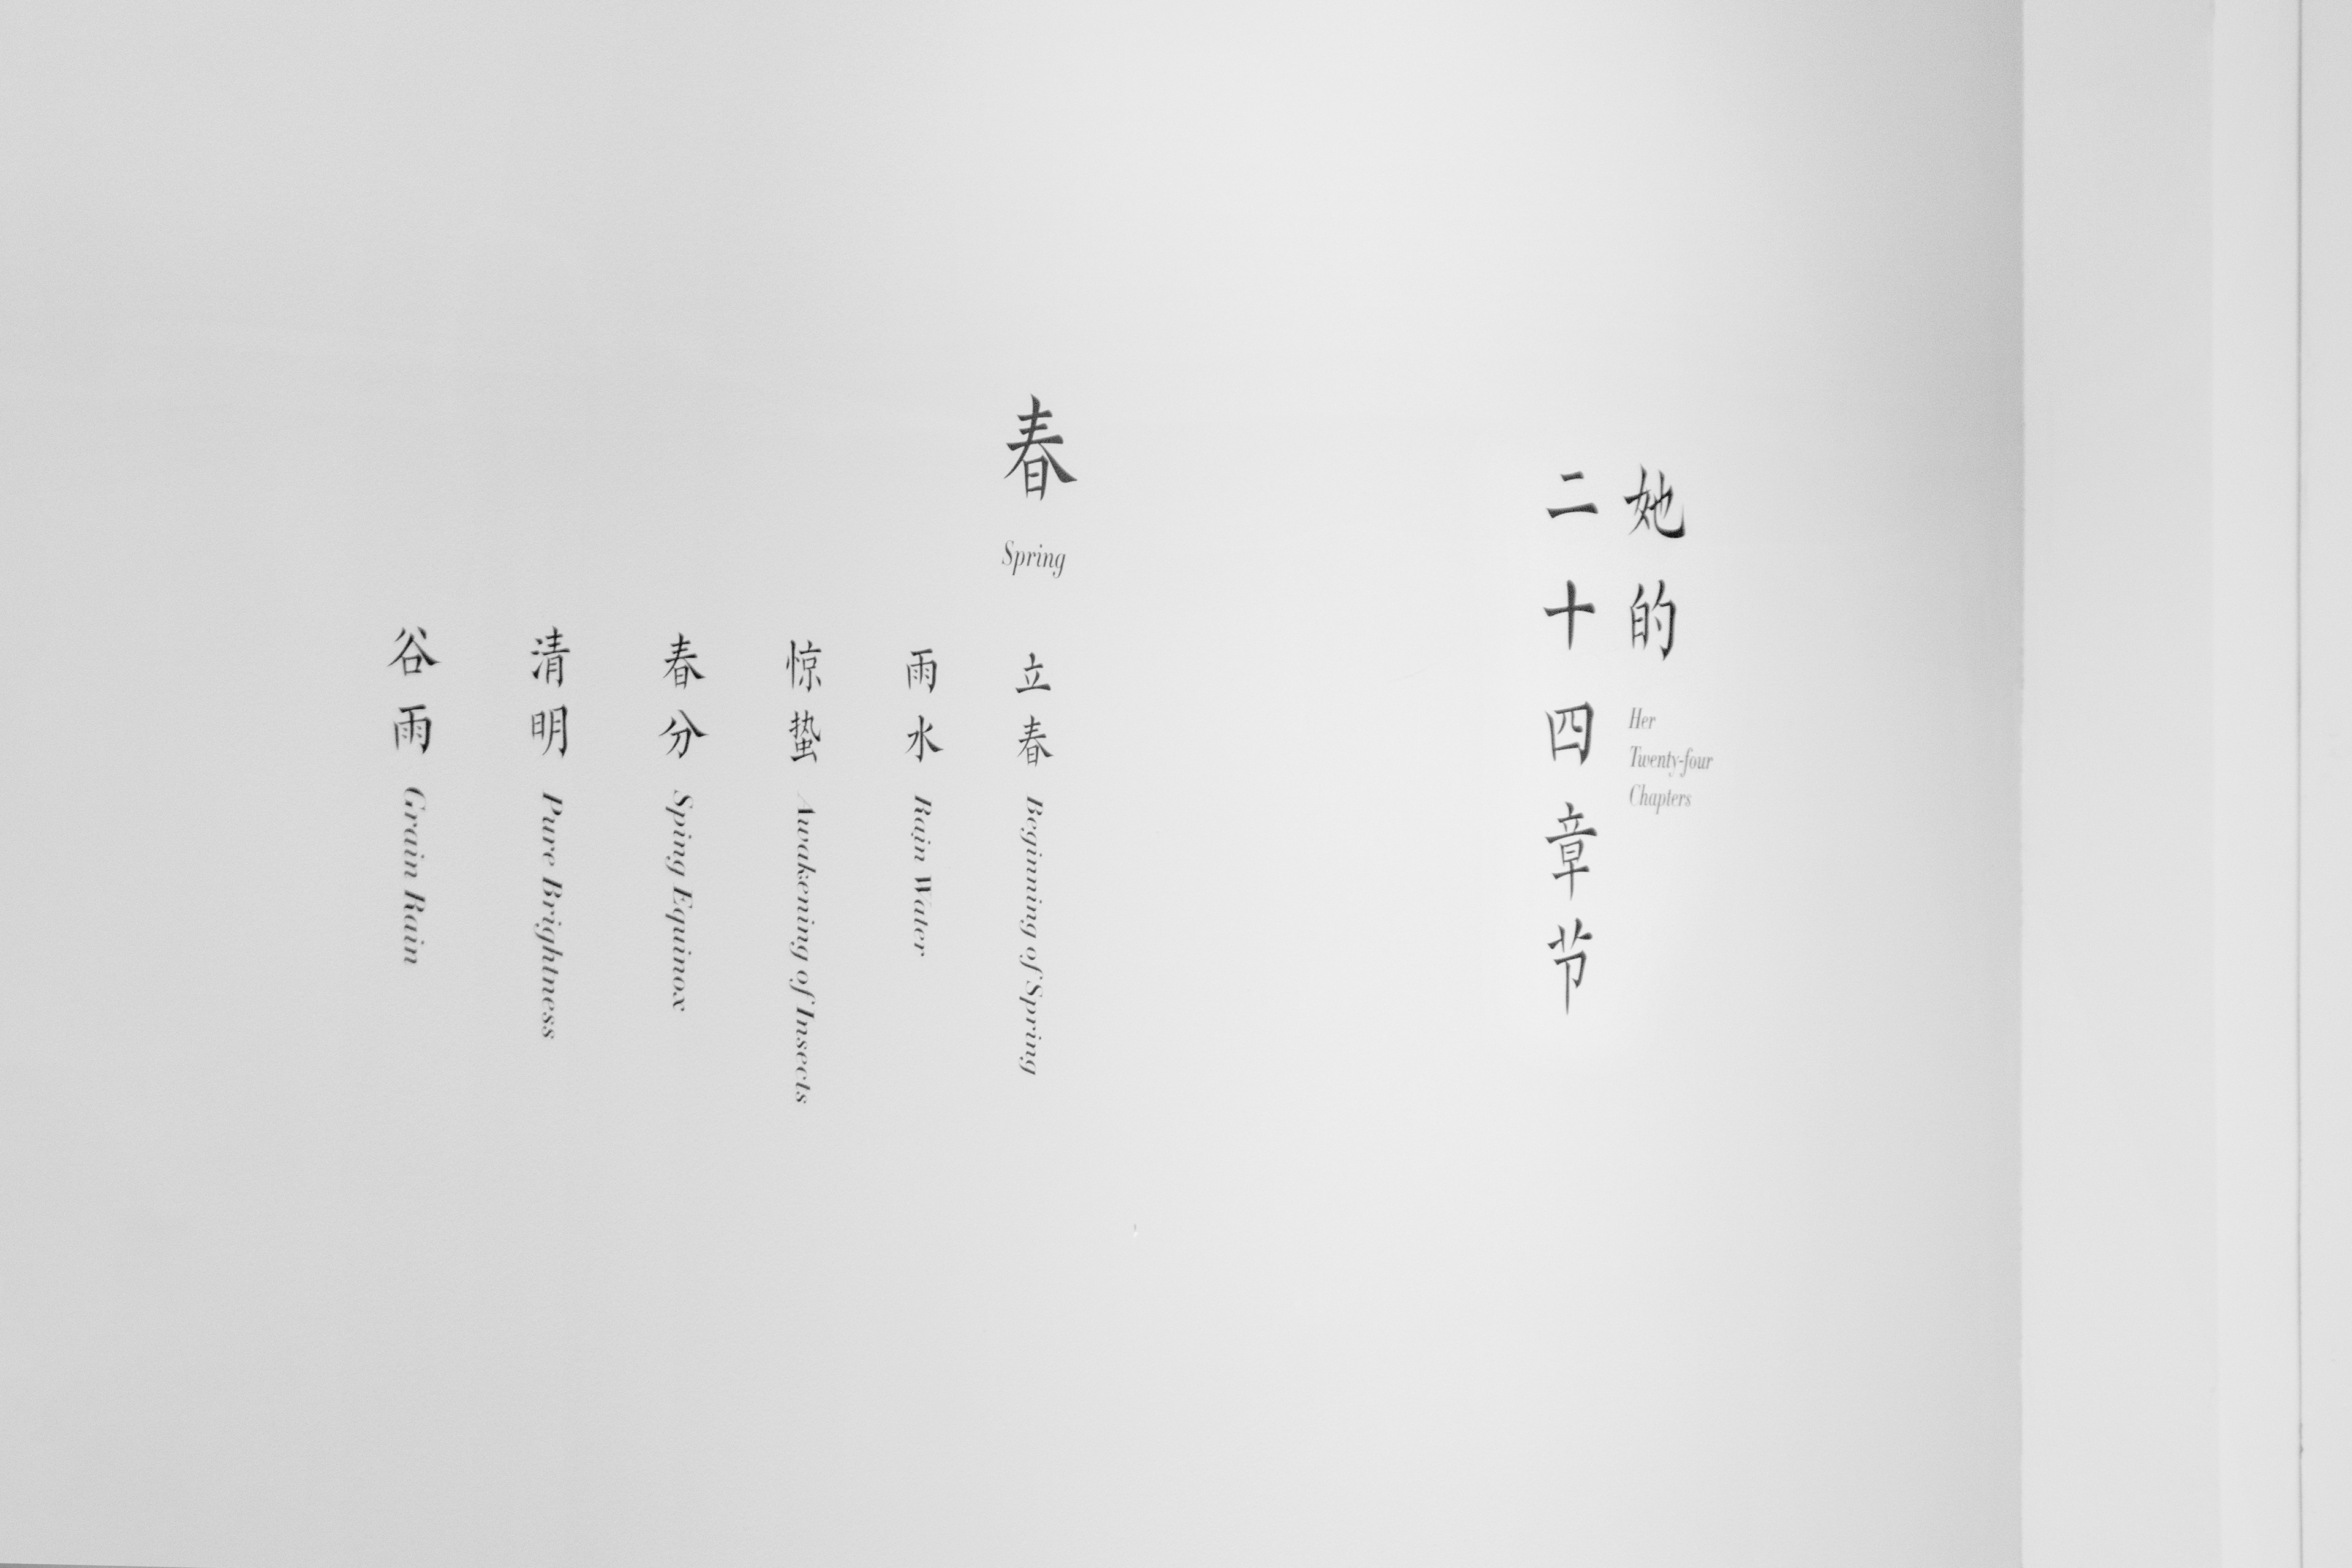 她的
二十四章节
Her
Twenty-four
Chapters
春
Spring
立春 Beginning of Spring
雨水 Rain Water
惊蛰 Awakening of Insects
春分 Sping Equinox
清明 Pure Brightness
谷雨 Grain Rain